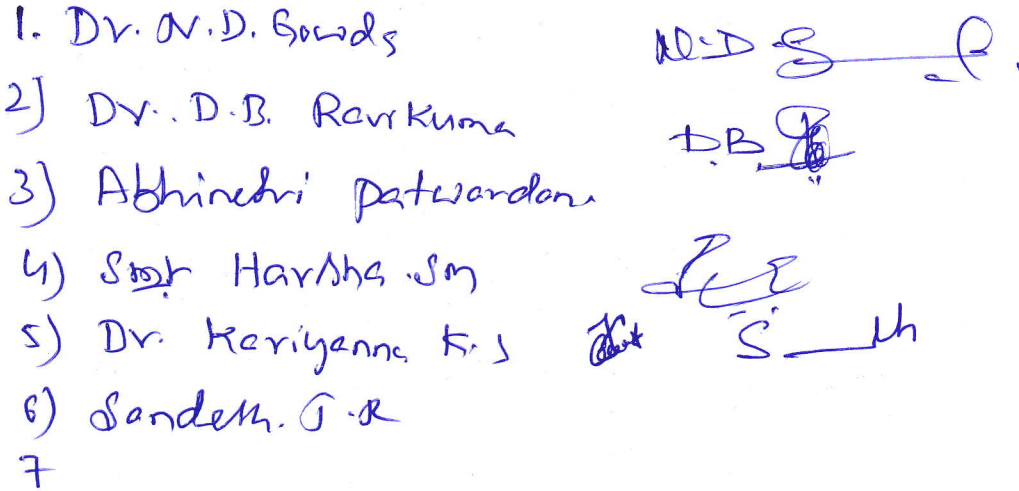 1. Dr. N.D. Gowda
N.D
2) Dr. D.B. Ravikuma
D.B.
3) Abhinetri patwardan.
4) Harsha .Sm
5) Dr. Kariyanna K.S
6) Sandesh. J.R
7